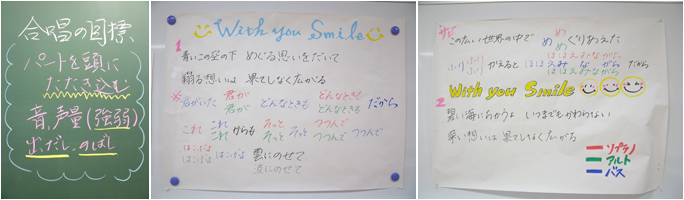 合唱の目標
パートを頭に
たたき込む
音,声量(強弱)
出だし,のばし
With you Smile
1
青いこの空の下 めぐる思いをだいて
翔る想いは 果てしなく広がる
※
君がいた 君が どんなときも どんなときも だから
君が どんなときも どんなときも
これ これ からも そっと そっと つつんで つつんで
これ そっと つつんで
はこぼう はこぼう 雲にのせて
はこぼう 波にのせて
サビ
この広い世界の中で め めぐりあえた
め
ほほえみながら
かえると ほほえみ ながら だから
ほほえみながら
With you Smile
2
碧い海におかうよ いつまでもかわらない
熱い想いは 果てしなく広がる
ソプラノ
アルト
バス